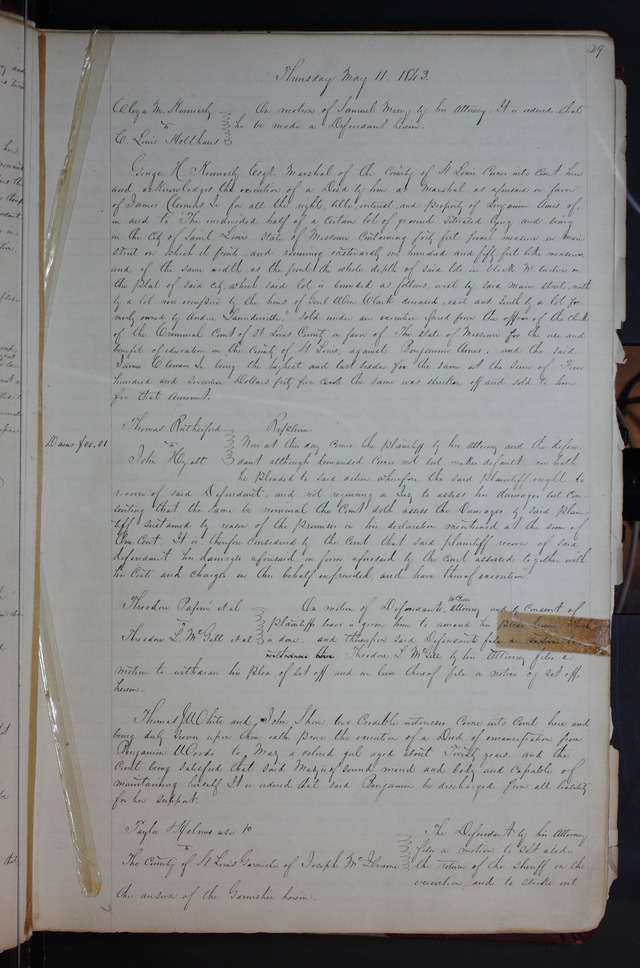 29
Thursday May 11. 1843.
Eliza M. Kennerly On motion of Samuel Merry by his Attorney, It is ordered that
vs he be made a Defendant herein.
C. Louis Holthaus
George H. Kennerly Esqr. Marshal of the County of St Louis Comes into Court here
and acknowledges the execution of a Deed by him as Marshal as aforesaid in favor
of James Clemens Jr for all the right, title, interest, and property of Benjamin Ames of,
in and to "The undivided half of a certain lot of ground situated lying and being
in the City of Saint Louis State of Missouri Containing forty feet front measure on Main
street on which it fronts, and running eastwardly one hundred and fifty feet like measure
and of the same width as the front the whole depth of said lot in block No twelve on
the plat of said city, which said lot is bounded as follows. west by said Main street, north
by a lot now occupied by the heirs of Genl Wm Clark deceased, east and South by a lot for-
merly owned by Andre Landreville," sold under an execution issued from the office of the clerk
of the Criminal Court of St Louis County in favor of The State of Missouri for the use and
benefit of education in the County of St Louis, against Benjamin Ames, and the said
James Clemens Jr being the highest and last bidder for the same at the sum of Five
hundred and Seventeen Dollars forty five cents the same was stricken off and sold to him
for that amount.
Thomas Rutherford Replevin.
Dams $00.01 vs Now at this day comes the plaintiff by his Attorney and the defen-
John Hyatt dant although demanded comes not but makes default, nor hath
he pleaded to said action wherefore the said plaintiff ought to
recover of said Defendant, and not requiring a Jury to assess his damages but con-
senting that the same be nominal the Court doth assess the Damages by said Plain-
tiff sustained by reason of the premises in his declaration mentioned at the sum of
One Cent. It is therefore considered by the Court that said plaintiff recover of said
defendant his damages aforesaid in form aforesaid by the Court assessed together with
his Costs and charges in this behalf expended, and have thereof execution.
Theodore Papin et al On motion of Defendants attorney and by Consent of
vs plaintiffs leave is given them to amend his pleas herein which
Theodore L. McGill et al is done. and thereupon said Defendants file a motion to
withdraw their Theodore L McGill by his Attorney files a
motion to withdraw his plea of set off and in lieu thereof file a notice of set off,
herein.
Thomas J White and, John Shore two Credible witnesses Come into Court here and
being duly sworn upon their oath prove the execution of a Deed of emancipation from
Benjamin Woods to May a colored girl aged about Twenty years. and the
Court being satisfied that said May is of sound mind and body and capable of
maintaining herself It is ordered that said Benjamin be discharged from all liability
for her support.
Taylor & Holmes use to The Defendant by his Attorney
vs files a motion to set aside
The County of St Louis Garnishee of Joseph McIlvaine the return of the sheriff on the
execution and to strike out
the answer of the Garnishee herein.